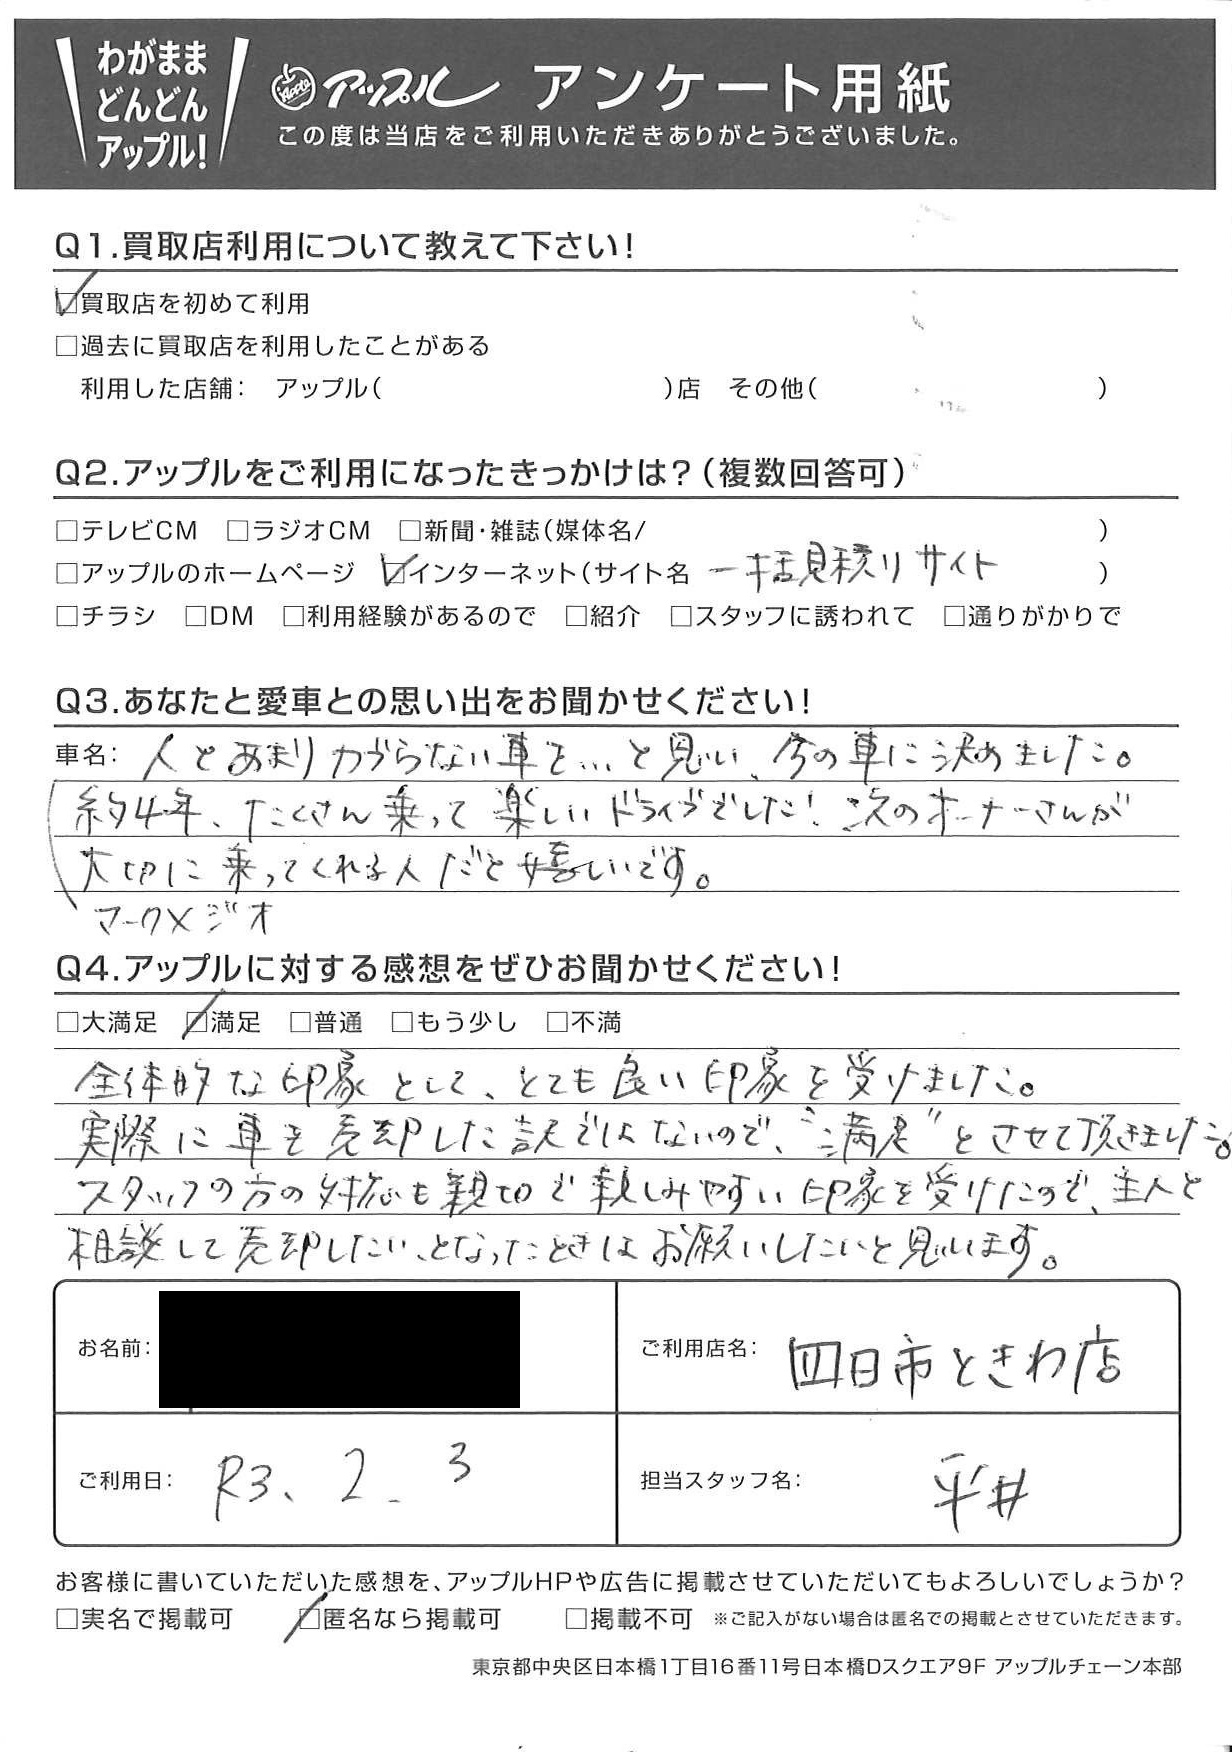 わがまま
どんどん
アップル!
Apple アップル アンケート用紙
この度は当店をご利用いただきありがとうございました。
Q1.買取店利用について教えて下さい!
☑買取店を初めて利用
□過去に買取店を利用したことがある
利用した店舗: アップル( )店 その他( )
Q2.アップルをご利用になったきっかけは?(複数回答可)
□テレビCM □ラジオCM □新聞・雑誌(媒体名/ )
□アップルのホームページ ☑インターネット(サイト名 一括見積りサイト )
□チラシ □DM □利用経験があるので □紹介 □スタッフに誘われて □通りがかりで
Q3.あなたと愛車との思い出をお聞かせください!
車名: 人とあまりカブらない車を…と思い、今の車に決めました。
約4年、たくさん乗って楽しいドライブでした!次のオーナーさんが
大切に乗ってくれる人だと嬉しいです。
マークXジオ
Q4.アップルに対する感想をぜひお聞かせください!
□大満足 ☑満足 □普通 □もう少し □不満
全体的な印象として、とても良い印象を受けました。
実際に車を売却した訳ではないので、"満足"とさせて頂きました。
スタッフの方の対応も親切で親しみやすい印象を受けたので、主人と
相談して売却したい、となったときはお願いしたいと思います。
お名前:
ご利用店名: 四日市ときわ店
ご利用日: R3、2. 3
担当スタッフ名: 平井
お客様に書いていただいた感想を、アップルHPや広告に掲載させていただいてもよろしいでしょうか?
□実名で掲載可 ☑匿名なら掲載可 □掲載不可 ※ご記入がない場合は匿名での掲載とさせていただきます。
東京都中央区日本橋1丁目16番11号日本橋Dスクエア9F アップルチェーン本部